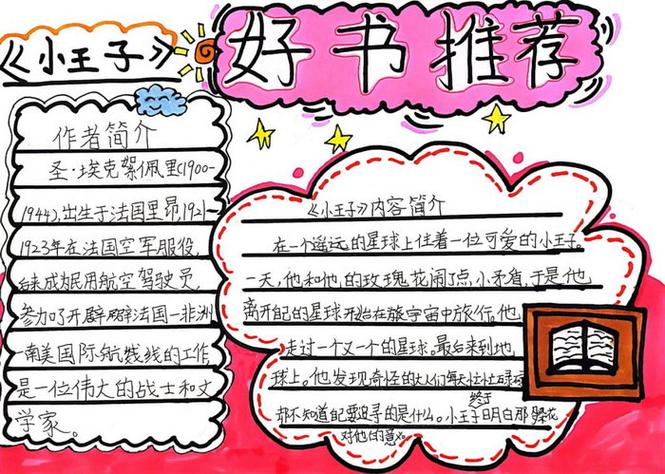 《小王子》
好书推荐
作者简介
圣·埃克絮佩里(1900-
1944),出生于法国里昂1921-
1923年在法国空军服役,
后来成为民用航空驾驶员,
参加了开辟法国—非洲
—南美国际航线线的工作
是一位伟大的战士和文
学家。
《小王子》内容简介
在一个遥远的星球上住着一位可爱的小王子。
一天,他和他的玫瑰花闹了点小矛盾,于是他
离开自己的星球开始在旅宇宙中旅行,他
走过一个又一个的星球。最后来到地
球上。他发现奇怪的大人们每天忙忙碌碌
却不知道自己要追寻的是什么。小王子终于明白那
对他的意义。